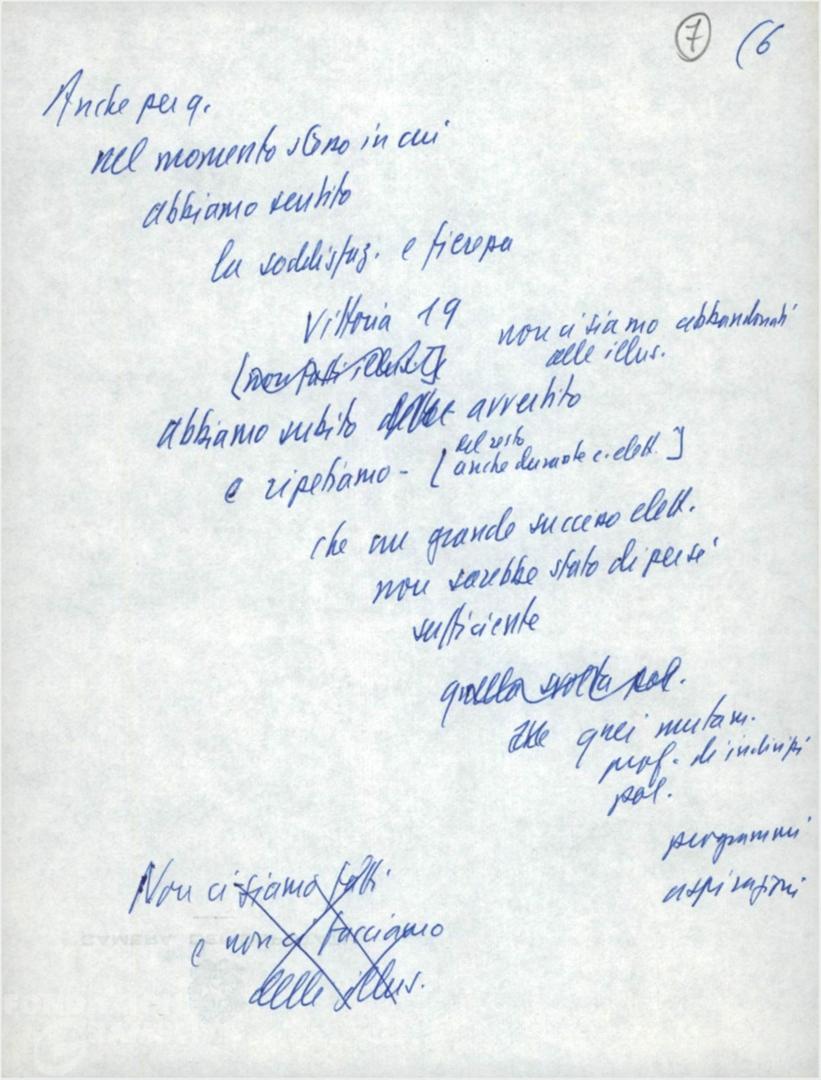 7 (6
Anche per q.
nel momento stesso in cui
abbiamo sentito
la soddisfaz. e fierezza
Vittoria 19
non ci siamo abbandonati
alle illus.
[non fatti illus.]
abbiamo subito avvertito
e ripetiamo - [del resto
anche durante c. elett.]
che un grande successo elett.
non sarebbe stato di per sé
sufficiente
quella svolta pol.
quei mutam.
prof. di indirizzi
pol.
programmi
aspirazioni
Non ci siamo fatti
e non ci facciamo
delle illus.
CAMERA DEI